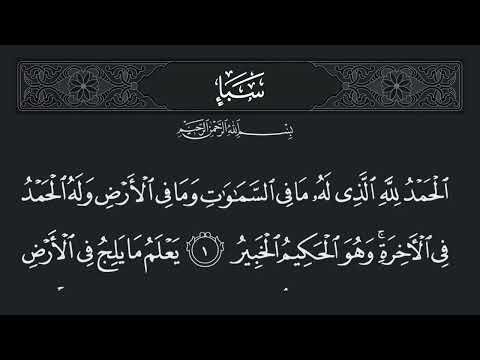 سَبَإٍ
بِسْمِ ٱللَّهِ ٱلرَّحْمَٰنِ ٱلرَّحِيمِ
ٱلْحَمْدُ لِلَّهِ ٱلَّذِى لَهُۥ مَا فِى ٱلسَّمَٰوَٰتِ وَمَا فِى ٱلْأَرْضِ وَلَهُ ٱلْحَمْدُ
فِى ٱلْأَخِرَةِ ۚ وَهُوَ ٱلْحَكِيمُ ٱلْخَبِيرُ ١ يَعْلَمُ مَا يَلِجُ فِى ٱلْأَرْضِ